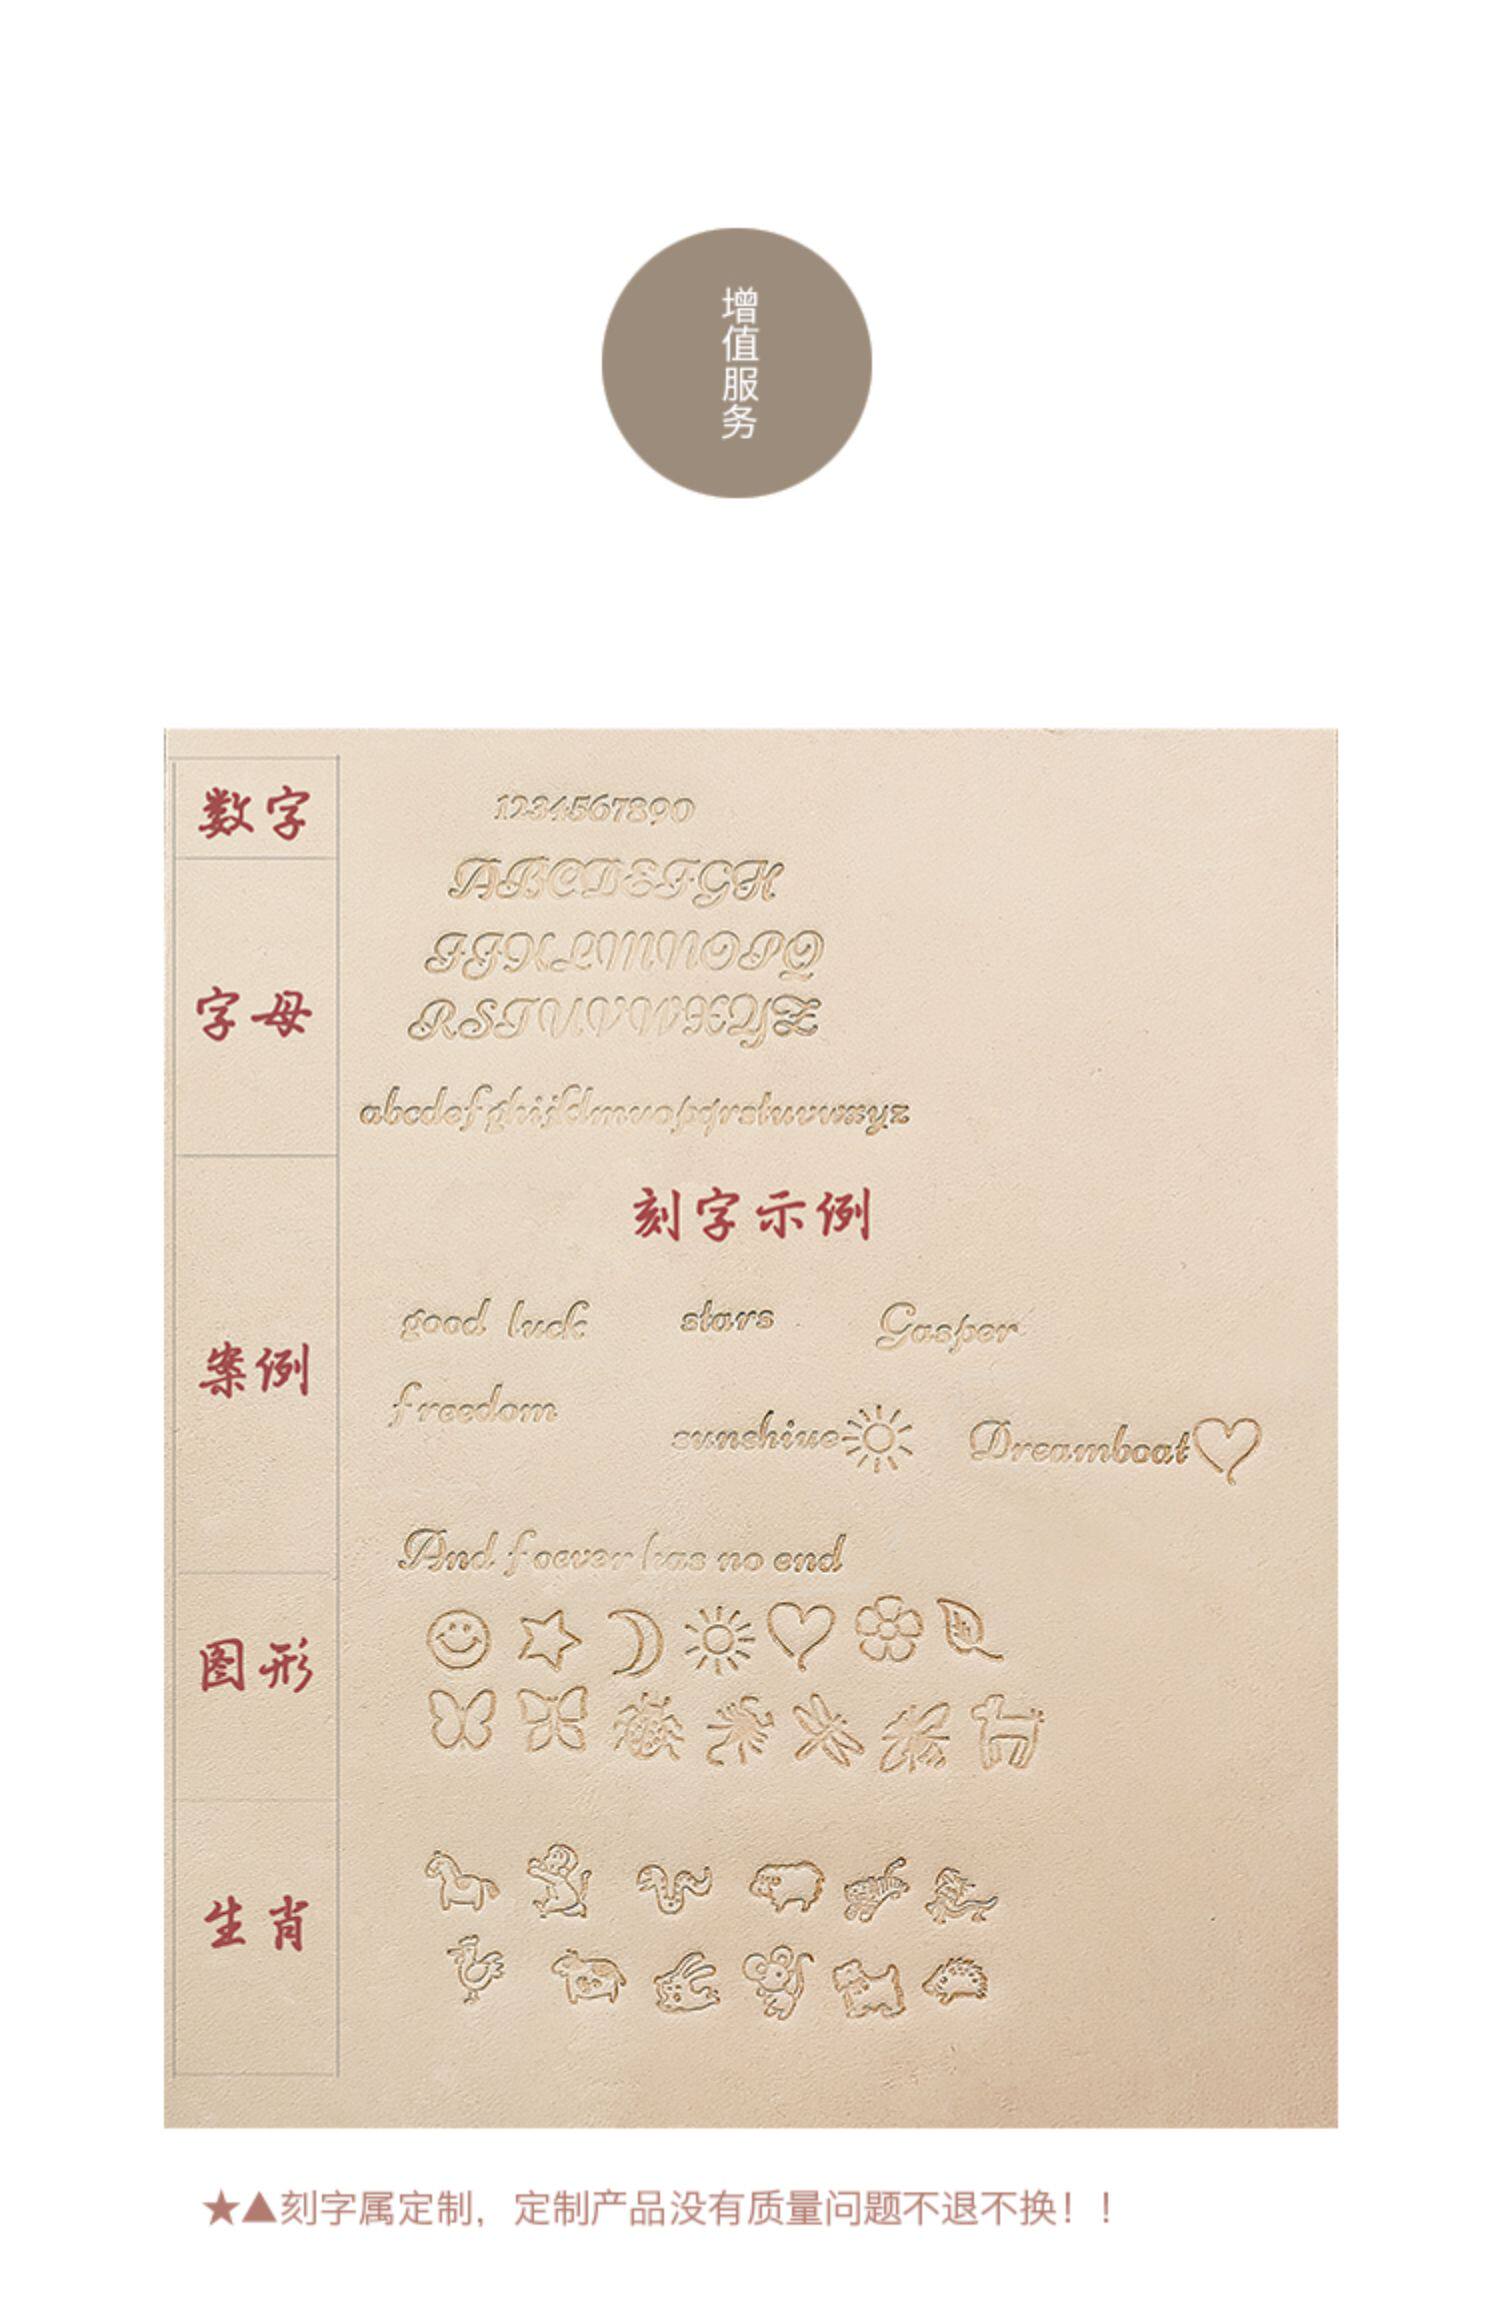 增值服务
数字
1234567890
字母
ABCDEFGH
IJKLMNOPQ
RSTUVWXYZ
abcdefghijklmnopqrstuvwxyz
刻字示例
案例
good luck stars Gasper
freedom
sunshine Dreamboat
And foever has no end
图形
生肖
★▲刻字属定制，定制产品没有质量问题不退不换！！